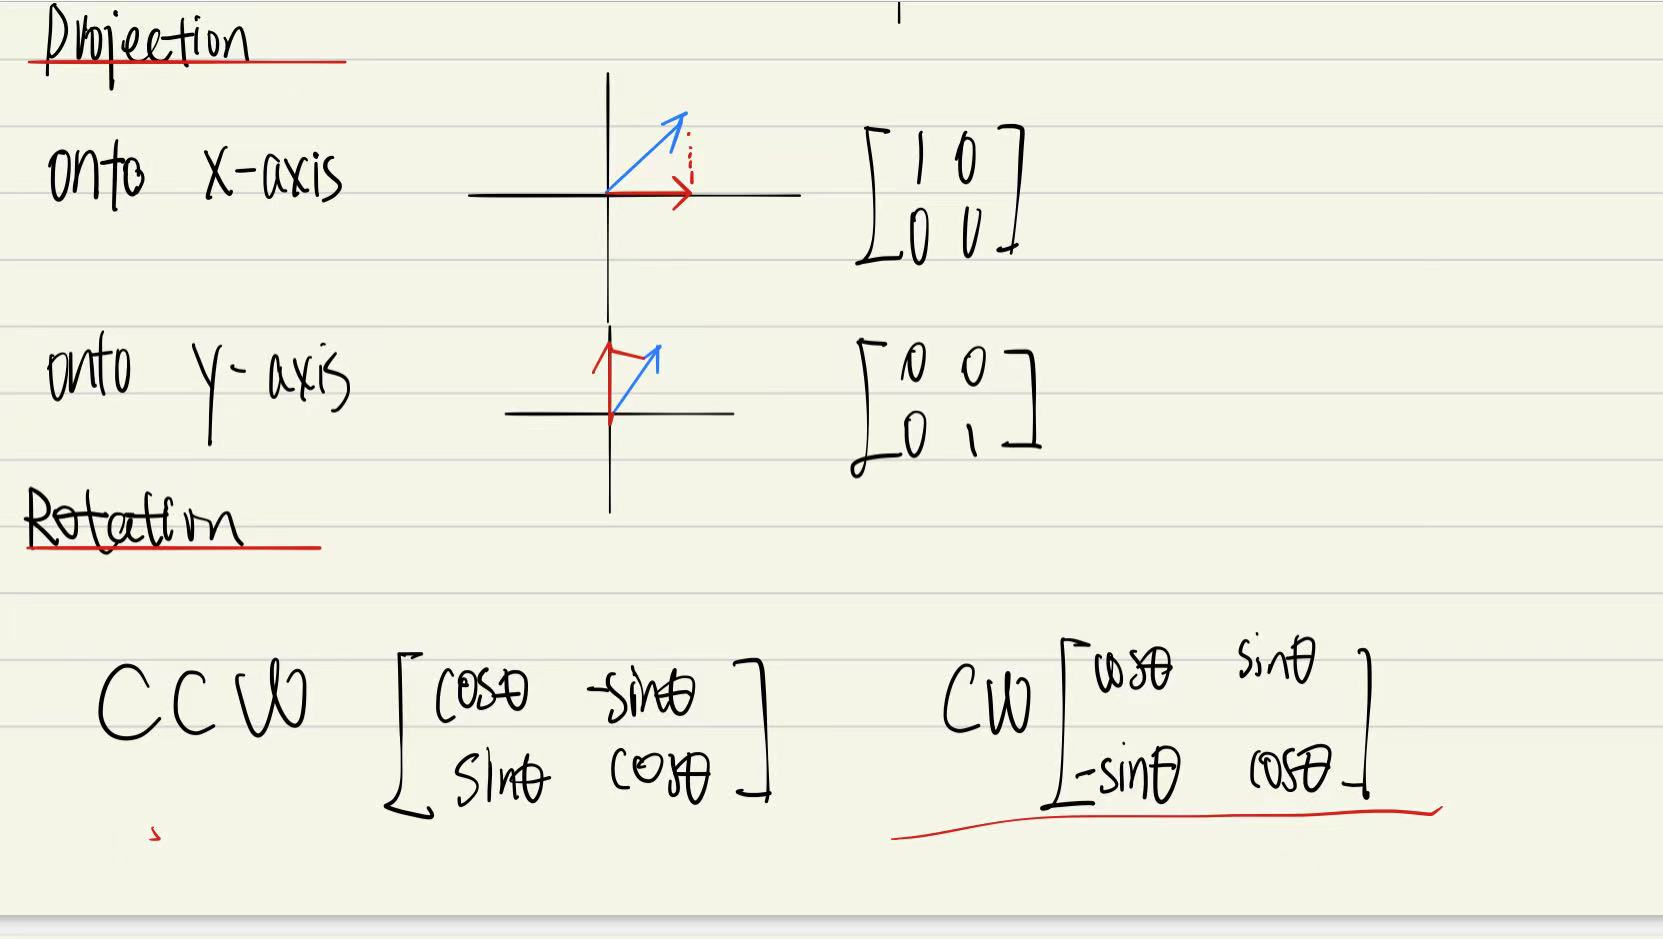 Projection
onto x-axis [1 0
0 0]
onto y-axis [0 0
0 1]
Rotation
CCW [cosθ -sinθ
sinθ cosθ]
CW [cosθ sinθ
-sinθ cosθ]